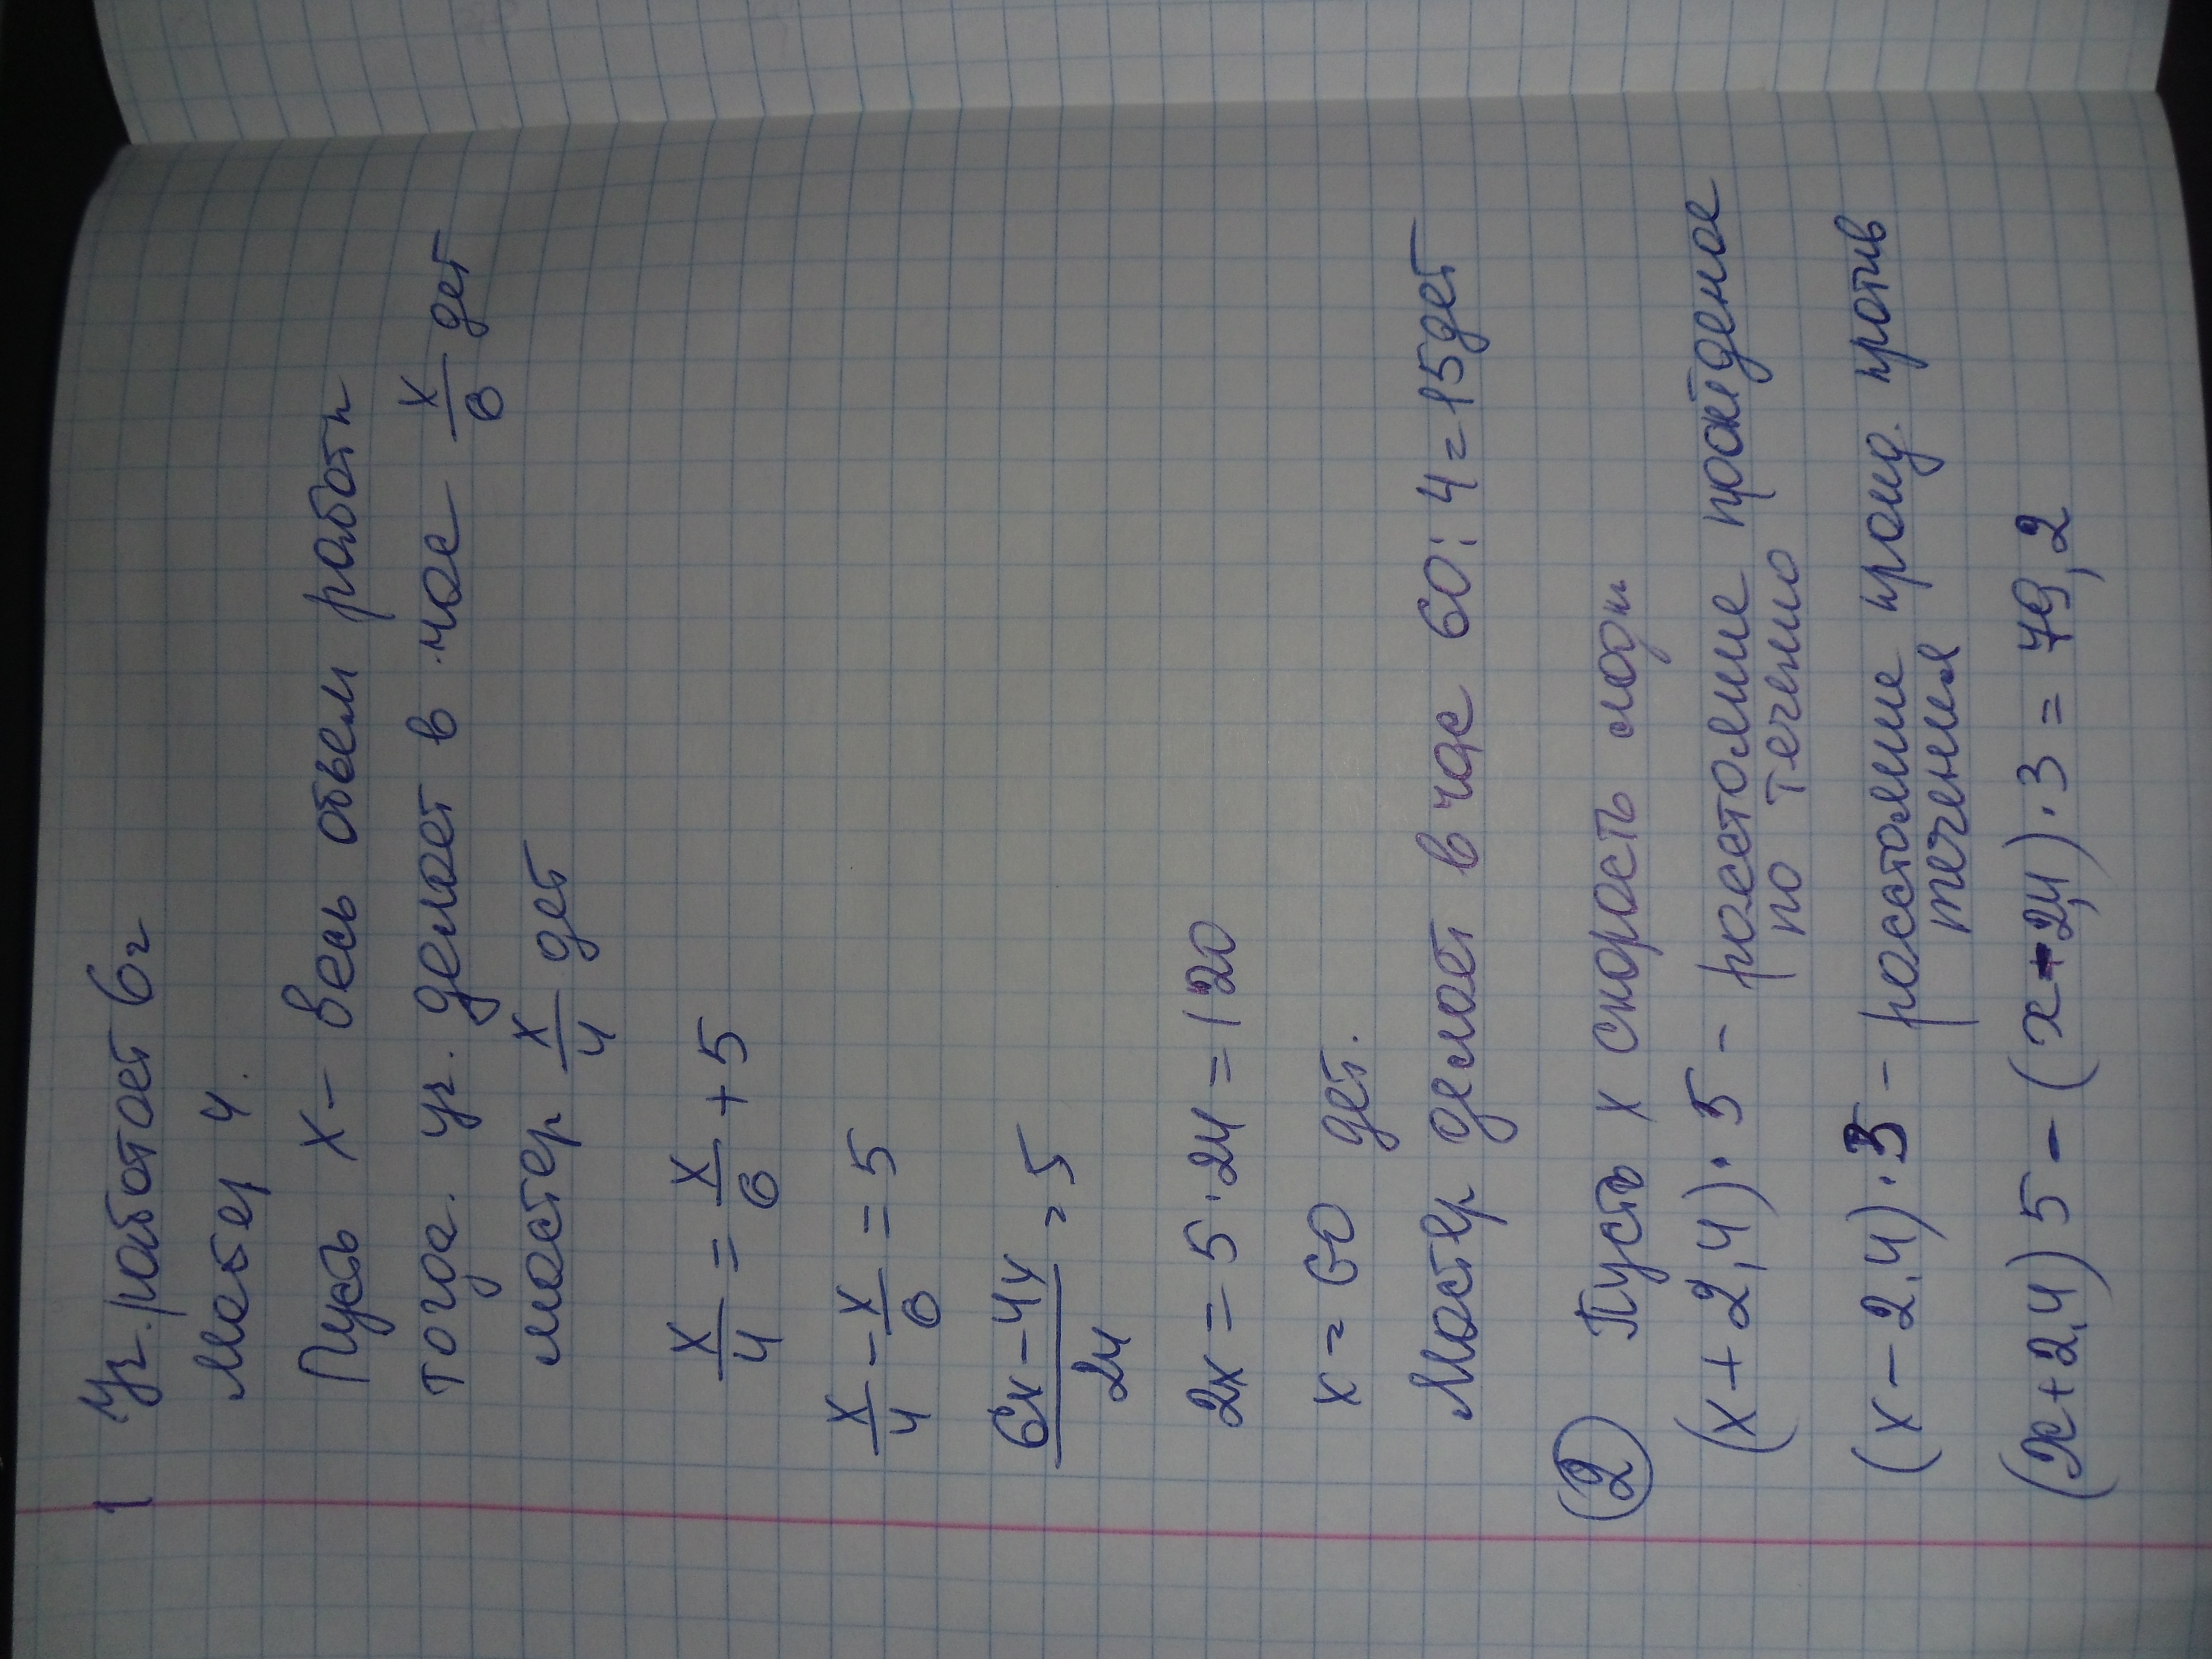 1 Уч. работает 6ч
мастер 4.
Пусть х- весь объем работы
тогда. уч. делает в час х/6 дет
мастер х/4 дет
х/4 = х/6 + 5
х/4 - х/6 = 5
6х-4х/24 = 5
2х = 5·24 = 120
х = 60 дет.
Мастер делает в час 60:4=15дет
2 Пусть х скорость лодки
(х+2,4)·5 - расстояние пройденое
по течению
(х-2,4)·3 - расстояние пройд. против
течения
(х+2,4)5-(х-2,4)·3=79,2